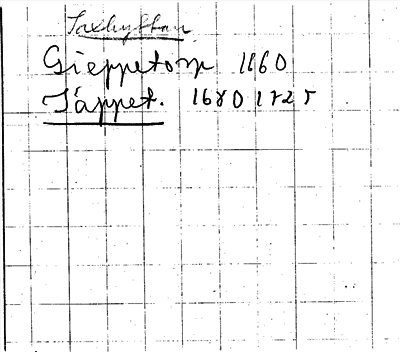 Laxhyttan
Gieppetorp 1160
Täppet. 1680 1725